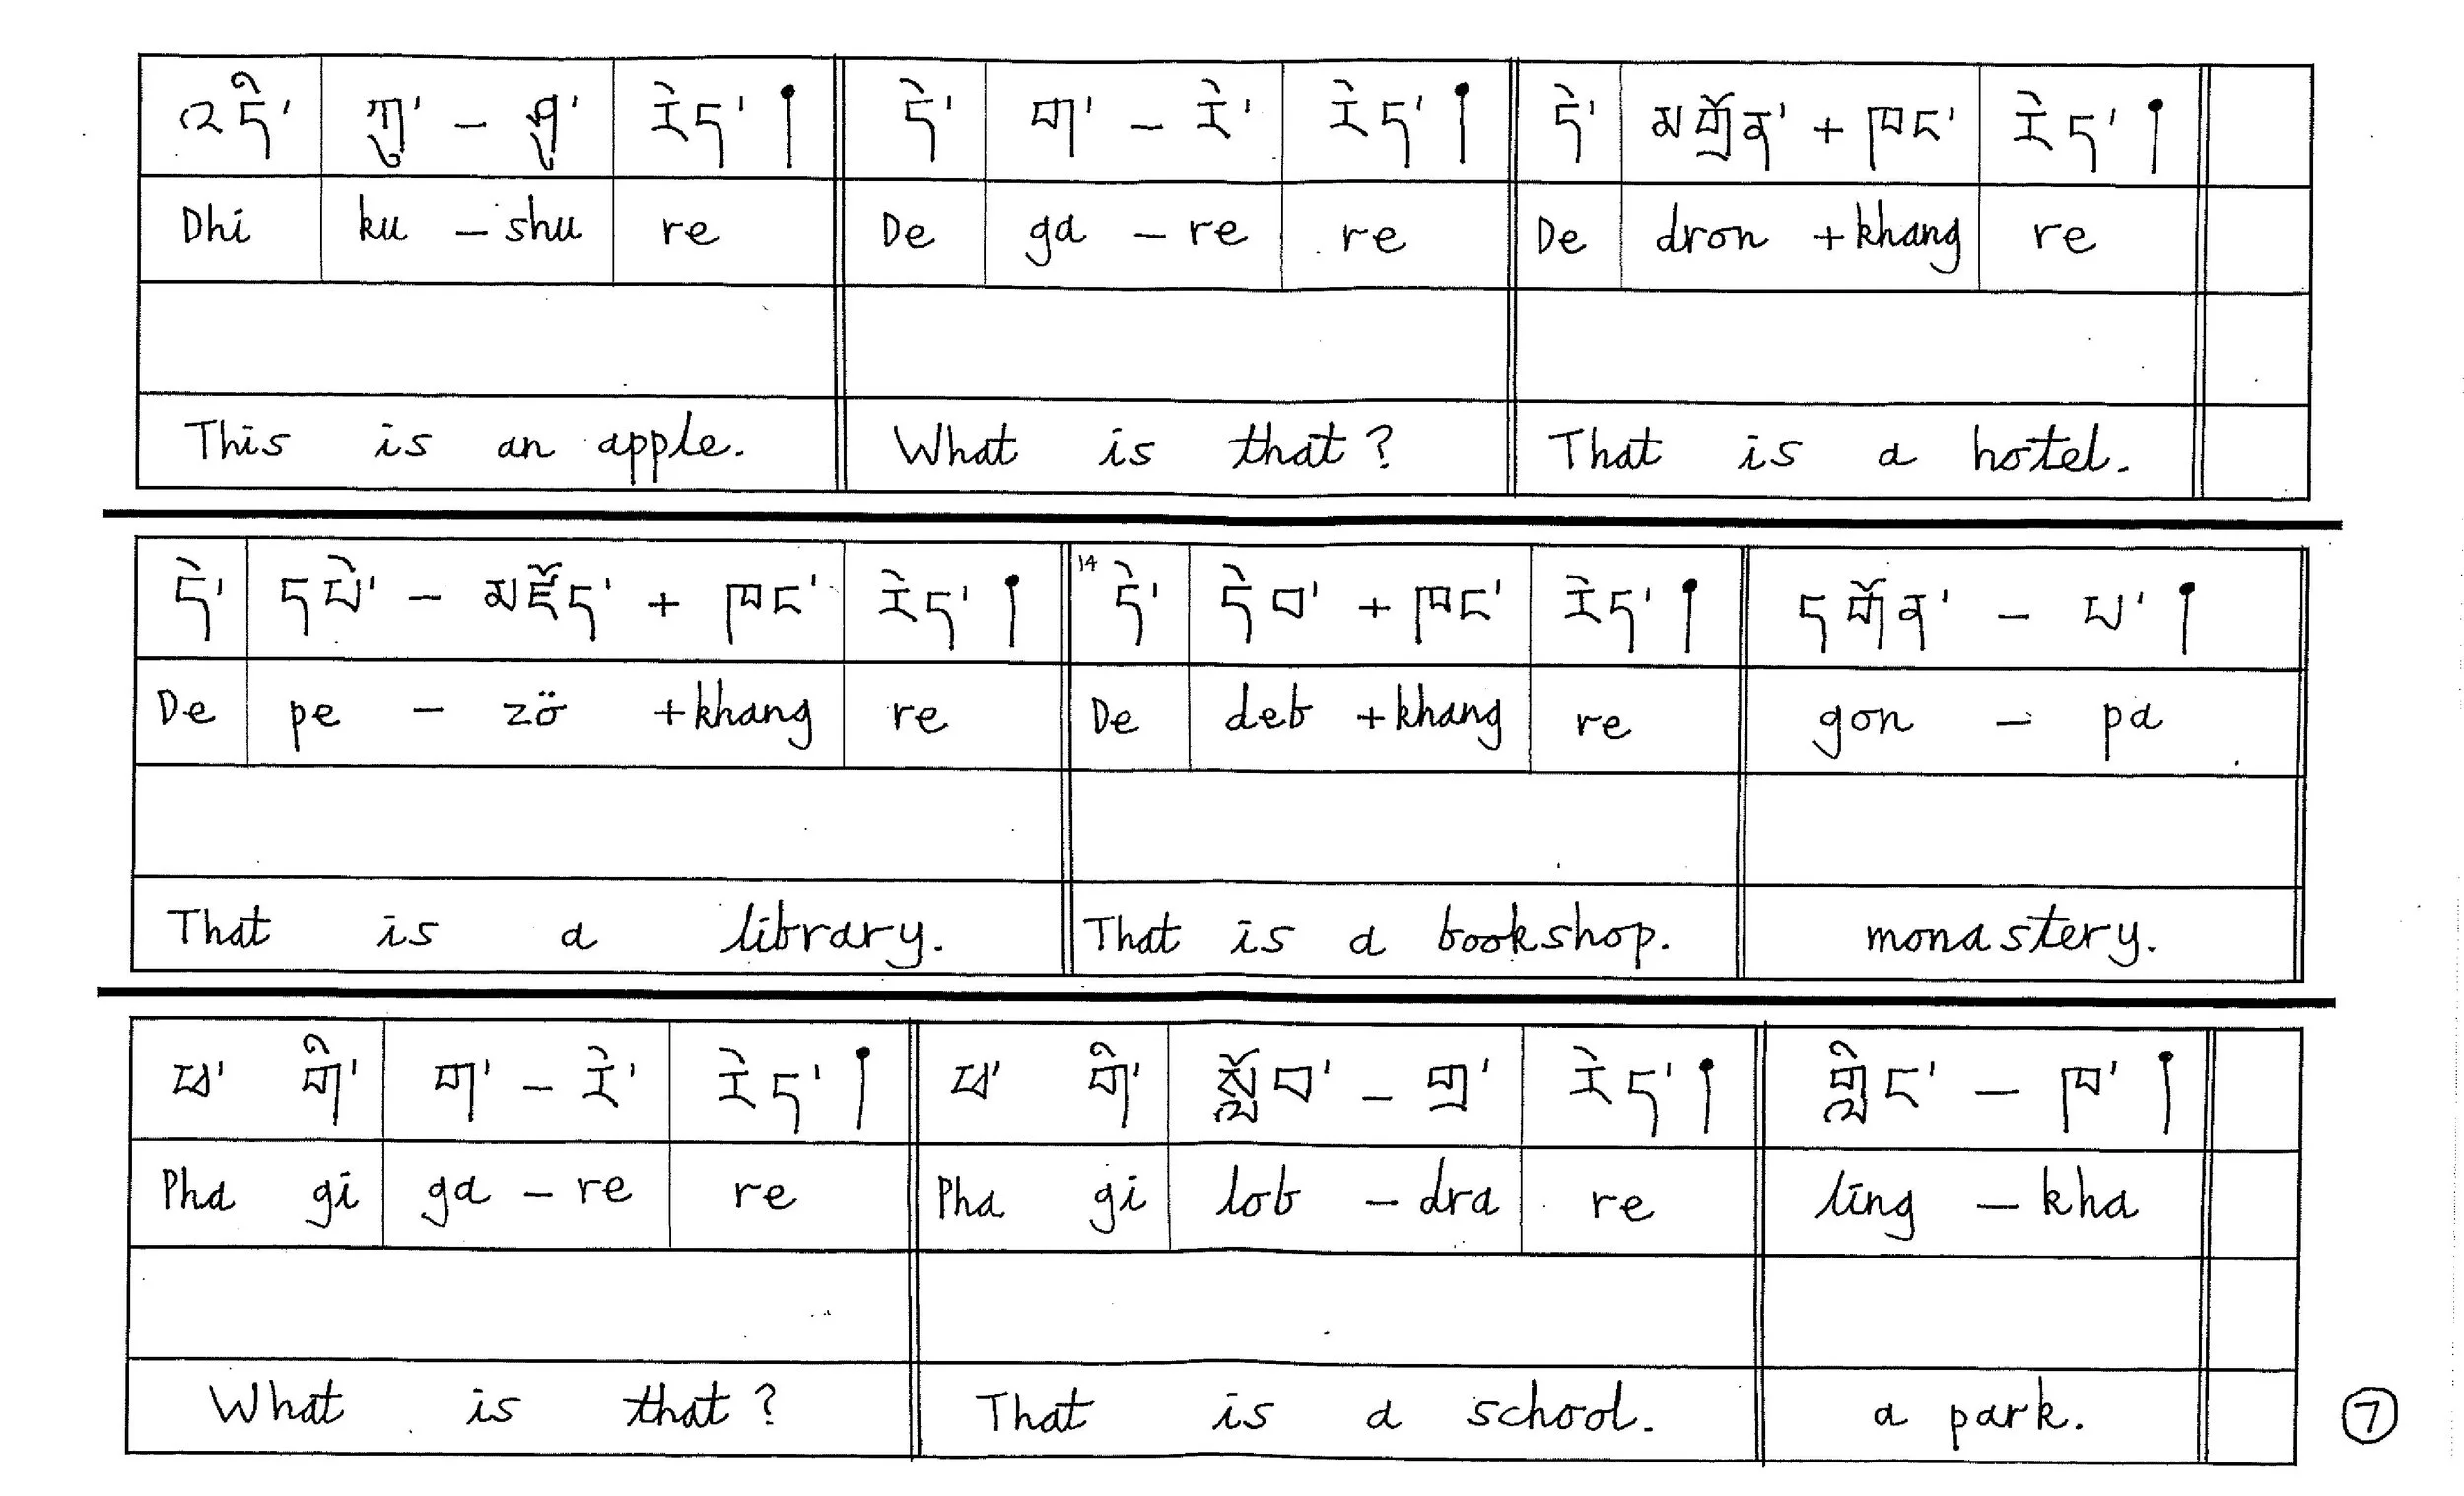 འདི་ ཀུ་ – ཤུ་ རེད་། དེ་ ག་ – རེ་ རེད་། དེ་ མགྲོན་ + ཁང་ རེད་།
Dhi ku – shu re De ga – re re De dron + khang re
This is an apple. What is that? That is a hotel.
དེ་ དཔེ་ – མཛོད་ + ཁང་ རེད་། 14 དེ་ དེབ་ + ཁང་ རེད་། དགོན་ – པ་།
De pe – zö + khang re De deb + khang re gon – pa
That is a library. That is a bookshop. monastery.
ཕ་ གི་ ག་ – རེ་ རེད་། ཕ་ གི་ སློབ་ – གྲ་ རེད་། གླིང་ – ཁ་།
Pha gi ga – re re Pha gi lob – dra re ling – kha
What is that? That is a school. a park.
7